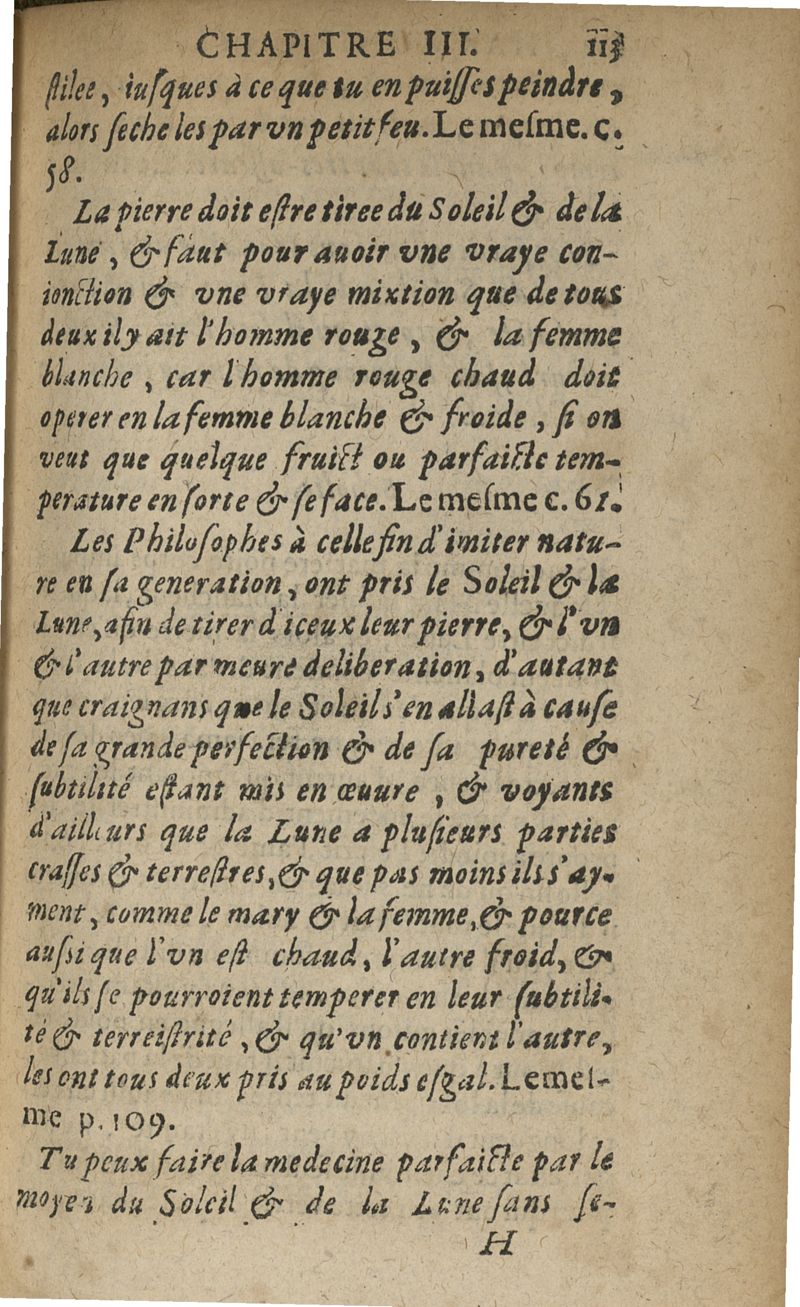 CHAPITRE III. 113
ſtilee, iuſques à ce que tu en puiſſes peindre,
alors ſeche les par vn petit feu. Le meſme. c.
58.
La pierre doit eſtre tiree du Soleil & de la
Lune, & faut pour auoir vne vraye con-
ionction & vne vraye mixtion que de tous
deux il y ait l'homme rouge, & la femme
blanche, car l'homme rouge chaud doit
operer en la femme blanche & froide, ſi on
veut que quelque fruict ou parfaicte tem-
perature en ſorte & ſe face. Le meſme c. 61.
Les Philoſophes à celle fin d'imiter natu-
re en ſa generation, ont pris le Soleil & la
Lune, afin de tirer d'iceux leur pierre, & l'vn
& l'autre par meure deliberation, d'autant
que craignans que le Soleil s'en allaſt à cauſe
de ſa grande perfection & de ſa pureté &
ſubtilité eſtant mis en œuure, & voyants
d'ailleurs que la Lune a pluſieurs parties
craſſes & terreſtres, & que pas moins ils s'ay-
ment, comme le mary & la femme, & pource
auſsi que l'vn eſt chaud, l'autre froid, &
qu'ils ſe pourroient temperer en leur ſubtili-
té & terreiſtrité, & qu'vn contient l'autre,
les ont tous deux pris au poids eſgal. Le meſ-
me p. 109.
Tu peux faire la medecine parfaicte par le
moyen du Soleil & de la Lune ſans ſe-
H